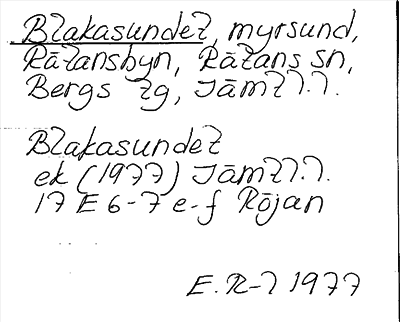 Blakasundet, myrsund,
Rätansbyn, Rätans sn,
Bergs tg, Jämtl.l.
Blakasundet
ek (1977) Jämtl.l.
17 E 6-7 e-f Röjan
E.R-l 1977